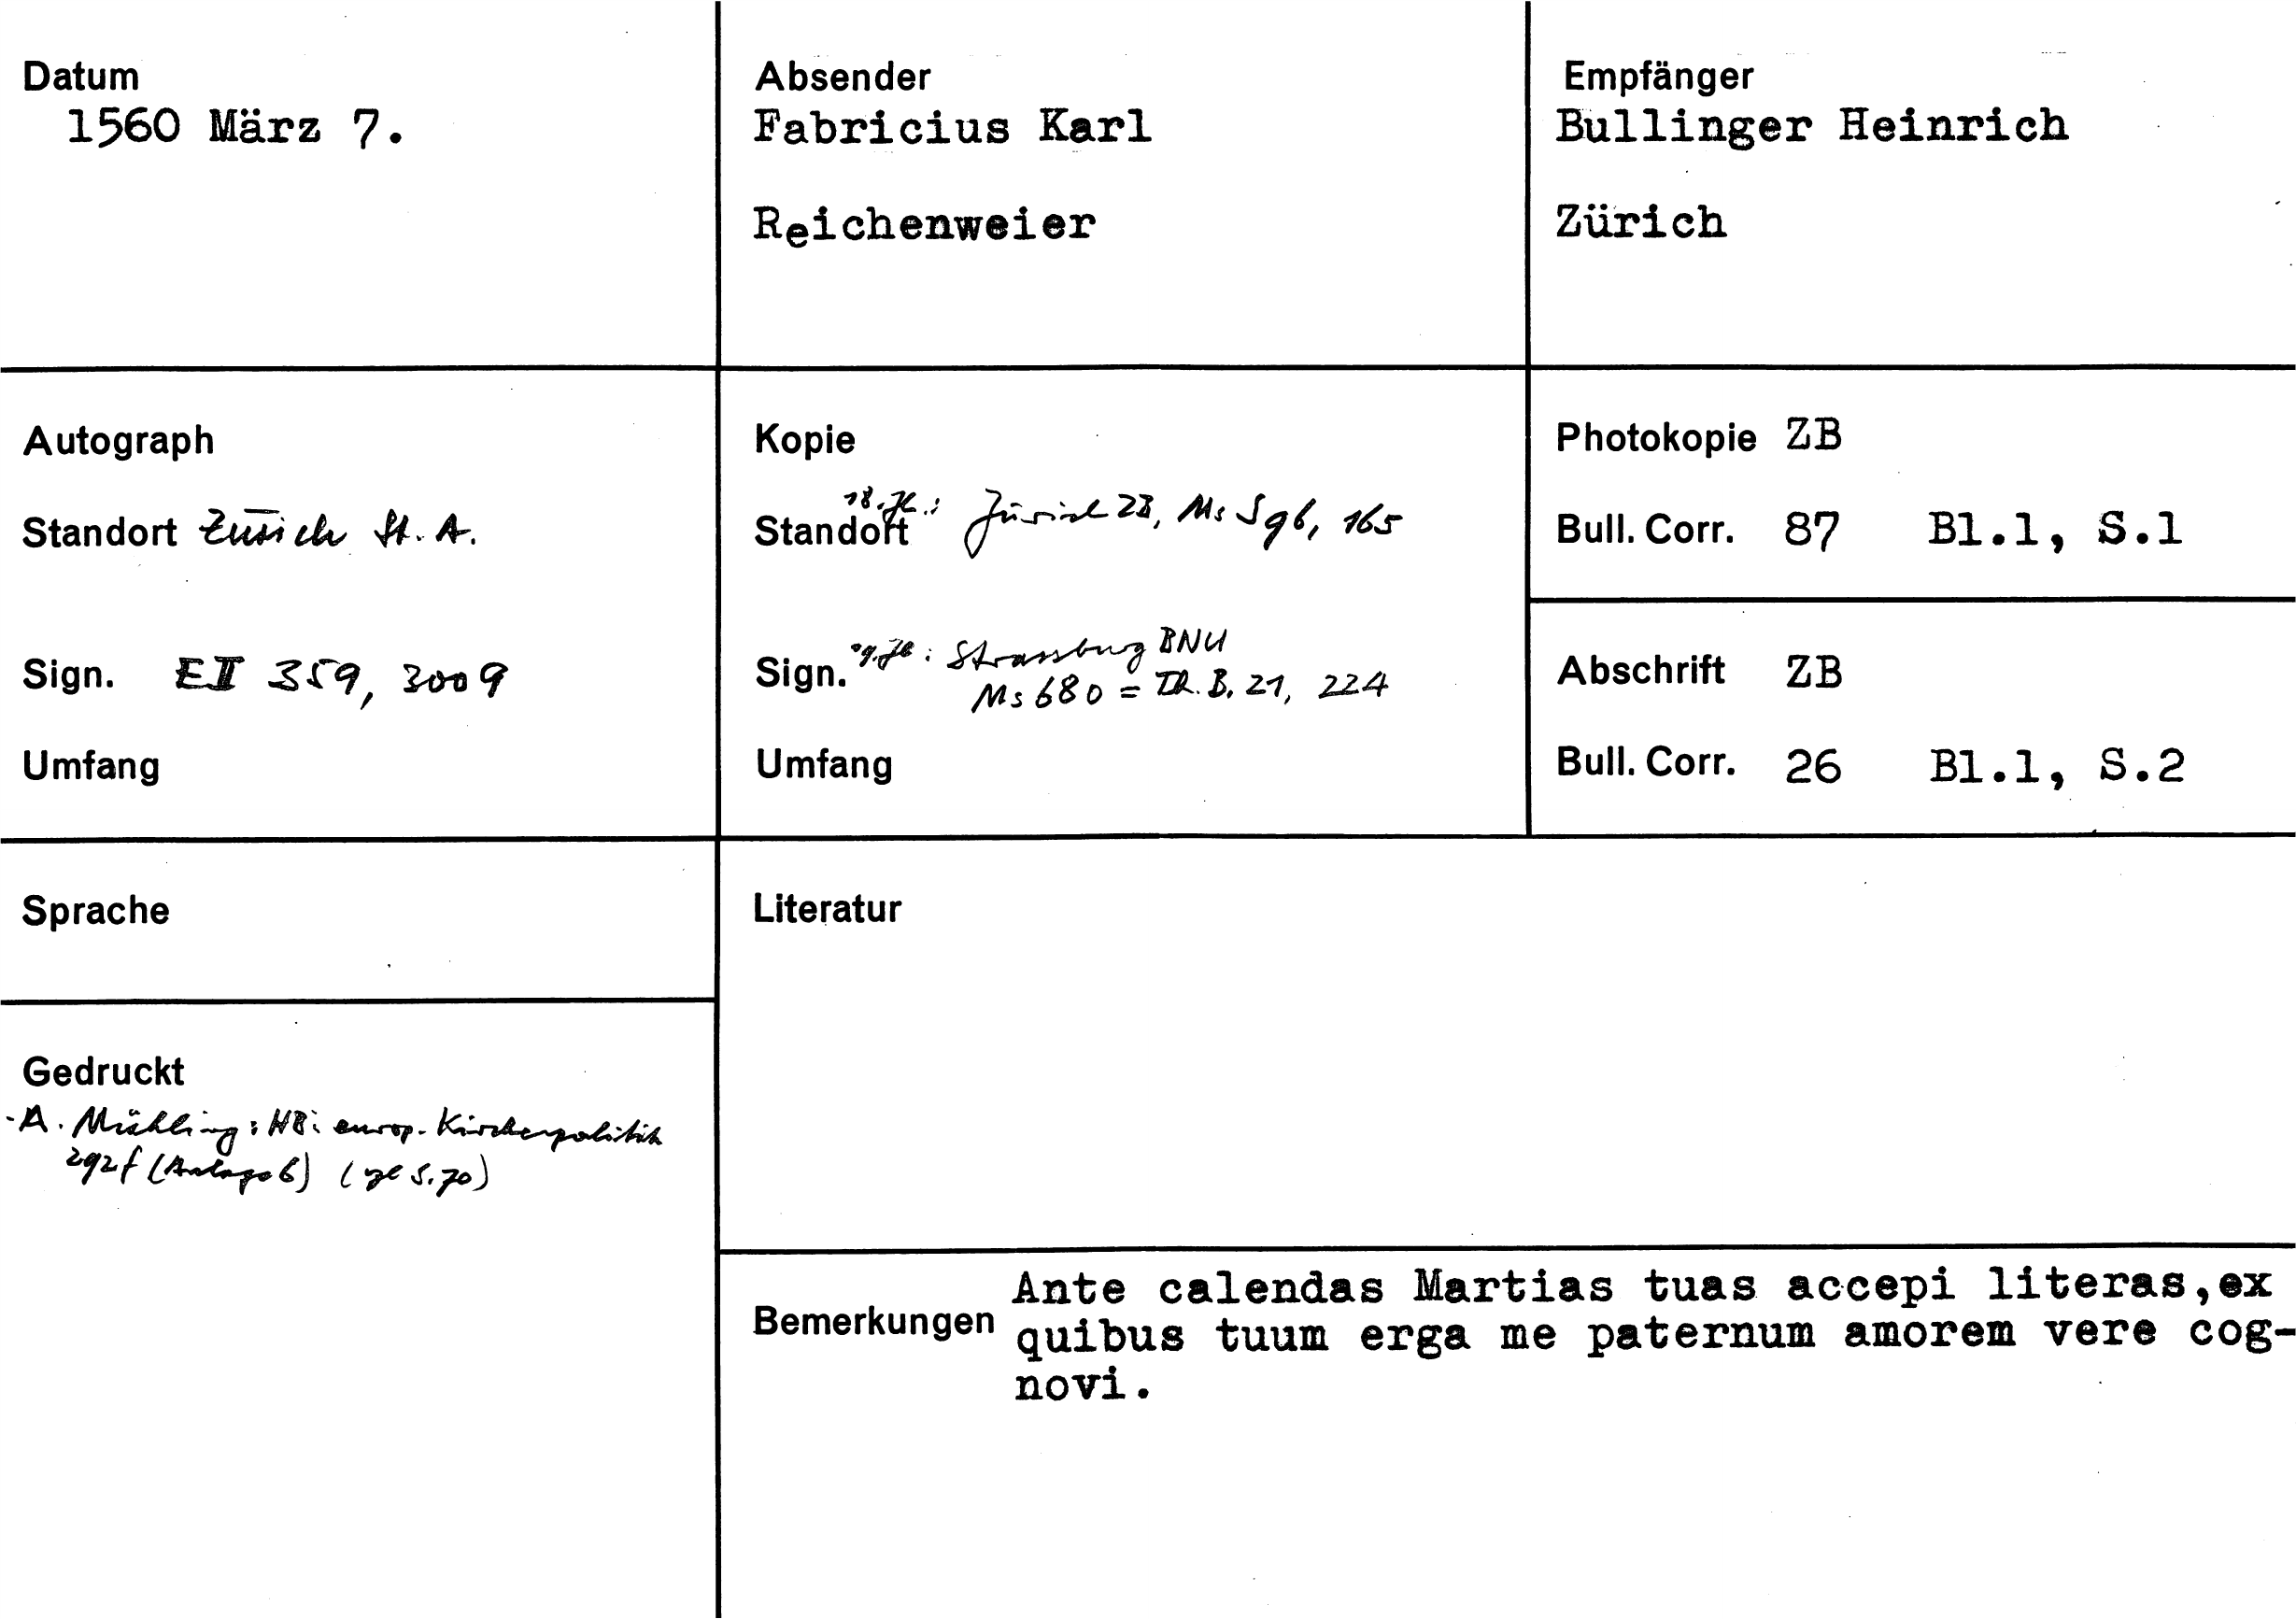 Datum
1560 März 7.
Absender
Fabricius Karl
Reichenweier
Empfänger
Bullinger Heinrich
Zürich
Autograph
Standort Zürich St. A.
Sign. E II 359, 3009
Umfang
Kopie
18. Jh.: Zürich ZB, Ms S 96, 165
Standort
Sign. 19. Jh: Strassburg BNU
Ms 680 = Th. B. 21, 224
Umfang
Photokopie ZB
Bull. Corr. 87 Bl.1, S.1
Abschrift ZB
Bull. Corr. 26 Bl.1, S.2
Sprache
Gedruckt
- A. Mühling: HB: europ. Kirchenpolitik
292f (Anlage 6) ( S. 70)
Literatur
Bemerkungen
Ante calendas Martias tuas accepi literas,ex
quibus tuum erga me paternum amorem vere cog-
novi.